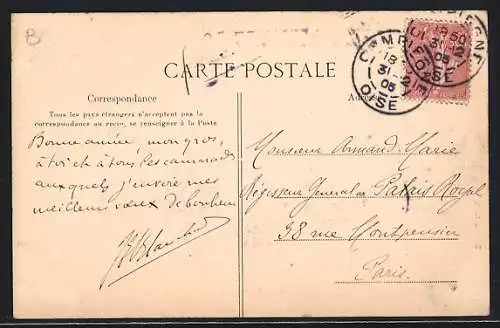 B
COMPIEGNE
18 50
31-12
08
OISE
COMPIEGNE
18
31-12
08
OISE
CARTE POSTALE
Correspondance
Tous les pays étrangers n'acceptent pas la
correspondance au recto, se renseigner à la Poste
Adresse
Bonne année, mon gros,
à toi et à tous les camarades
auxquels j'envoie mes
meilleurs vœux de bonheur
Monsieur Armand Marie
Régisseur General au Palais Royal
38 rue Montpensier
Paris.